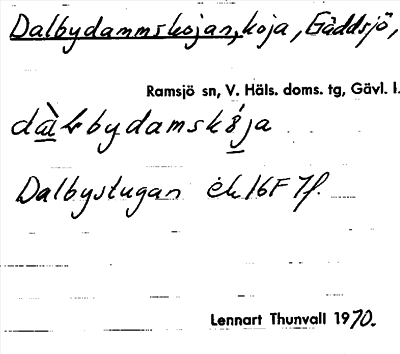 Dalbydammskojan, koja, Gäddsjö,
Ramsjö sn, V. Häls. doms. tg, Gävl. l.
dàlbydamskója
Dalbystugan ek 16F 7f.
Lennart Thunvall 1970.